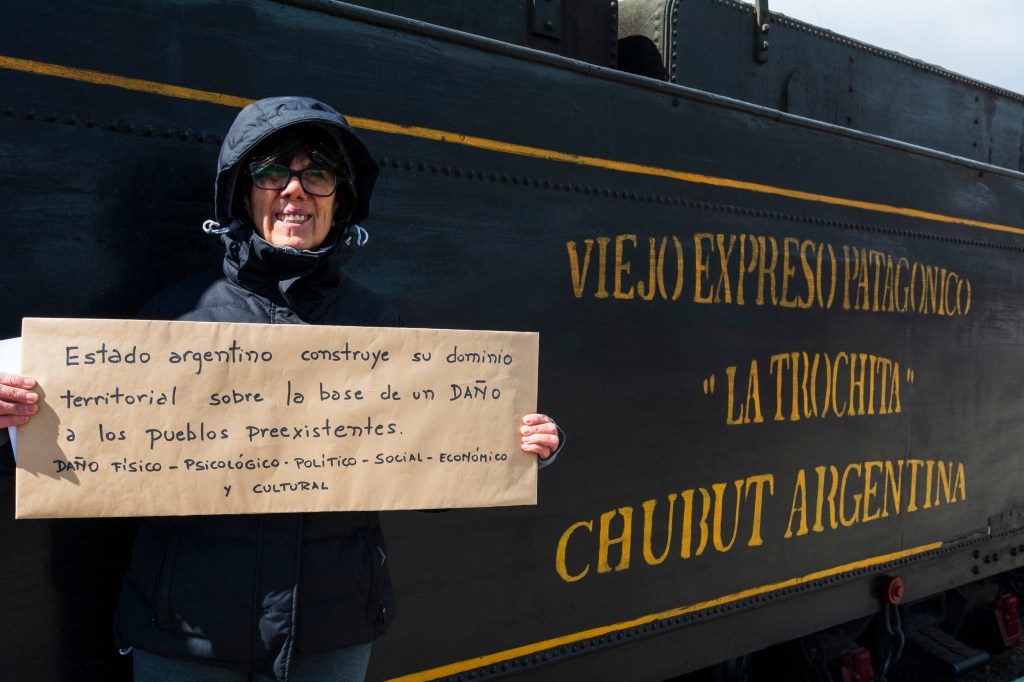 Estado argentino construye su dominio
territorial sobre la base de un DAÑO
a los pueblos preexistentes.
DAÑO FÍSICO - PSICOLÓGICO - POLÍTICO - SOCIAL - ECONÓMICO
Y CULTURAL
VIEJO EXPRESO PATAGONICO
"LA TROCHITA"
CHUBUT ARGENTINA